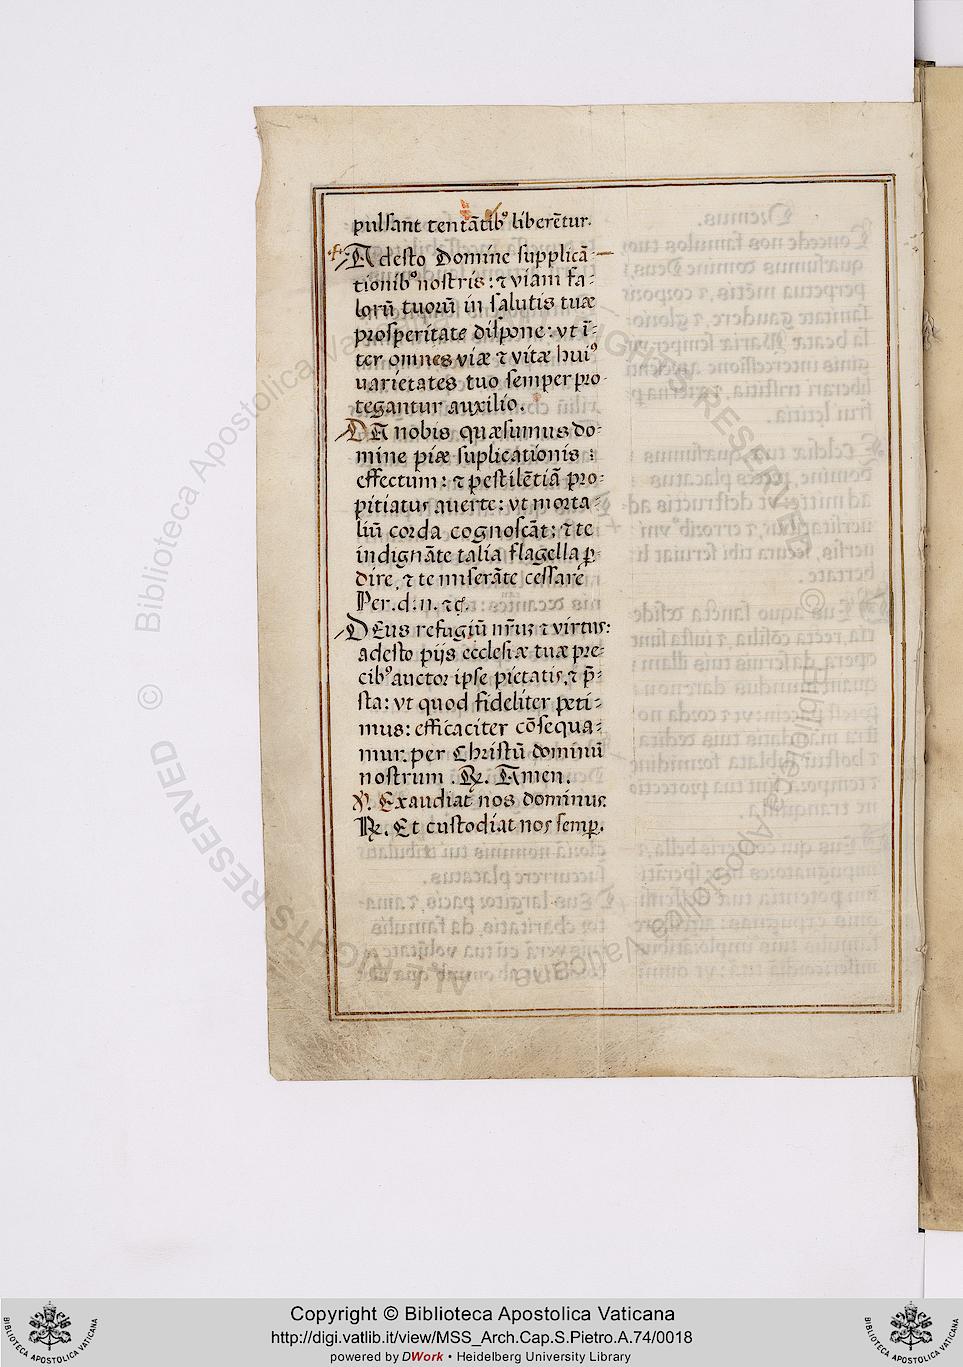 pulsant tentātibꝰ liberētur.
Adesto Domine supplicā-
tionibꝰ nostris: ⁊ viam fa-
lorū tuorū in salutis tuæ
prosperitate dispone: vt ī-
ter omnes viæ ⁊ vitæ huiꝰ
uarietates tuo semper pro-
tegantur auxilio.
DA nobis quæsumus do-
mine piæ suplicationis
effectum: ⁊ pestilētiā pro-
pitiatus auerte: vt morta-
liū corda cognoscāt: ⁊ te
indignāte talia flagella ꝓ-
dire, ⁊ te miserāte cessare
Per. d: n. ⁊c.
DEus refugiū nr̄us ⁊ virtus:
adesto pijs ecclesiæ tuæ pre-
cibꝰ auctor ipse pietatis, ⁊ p̄-
sta: vt quod fideliter peti-
mus: efficaciter cōsequa-
mur. per Christū dominū
nostrum. ℟. Amen.
℣. Exaudiat nos dominus.
℟. Et custodiat nos semꝑ.
© Biblioteca Apostolica Vaticana
ALL RIGHTS RESERVED
Copyright © Biblioteca Apostolica Vaticana
http://digi.vatlib.it/view/MSS_Arch.Cap.S.Pietro.A.74/0018
powered by DWork • Heidelberg University Library
BIBLIOTECA APOSTOLICA VATICANA
BIBLIOTECA APOSTOLICA VATICANA